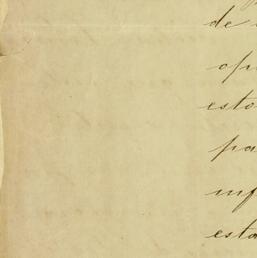 de
opi
esto
pa
inf
esta